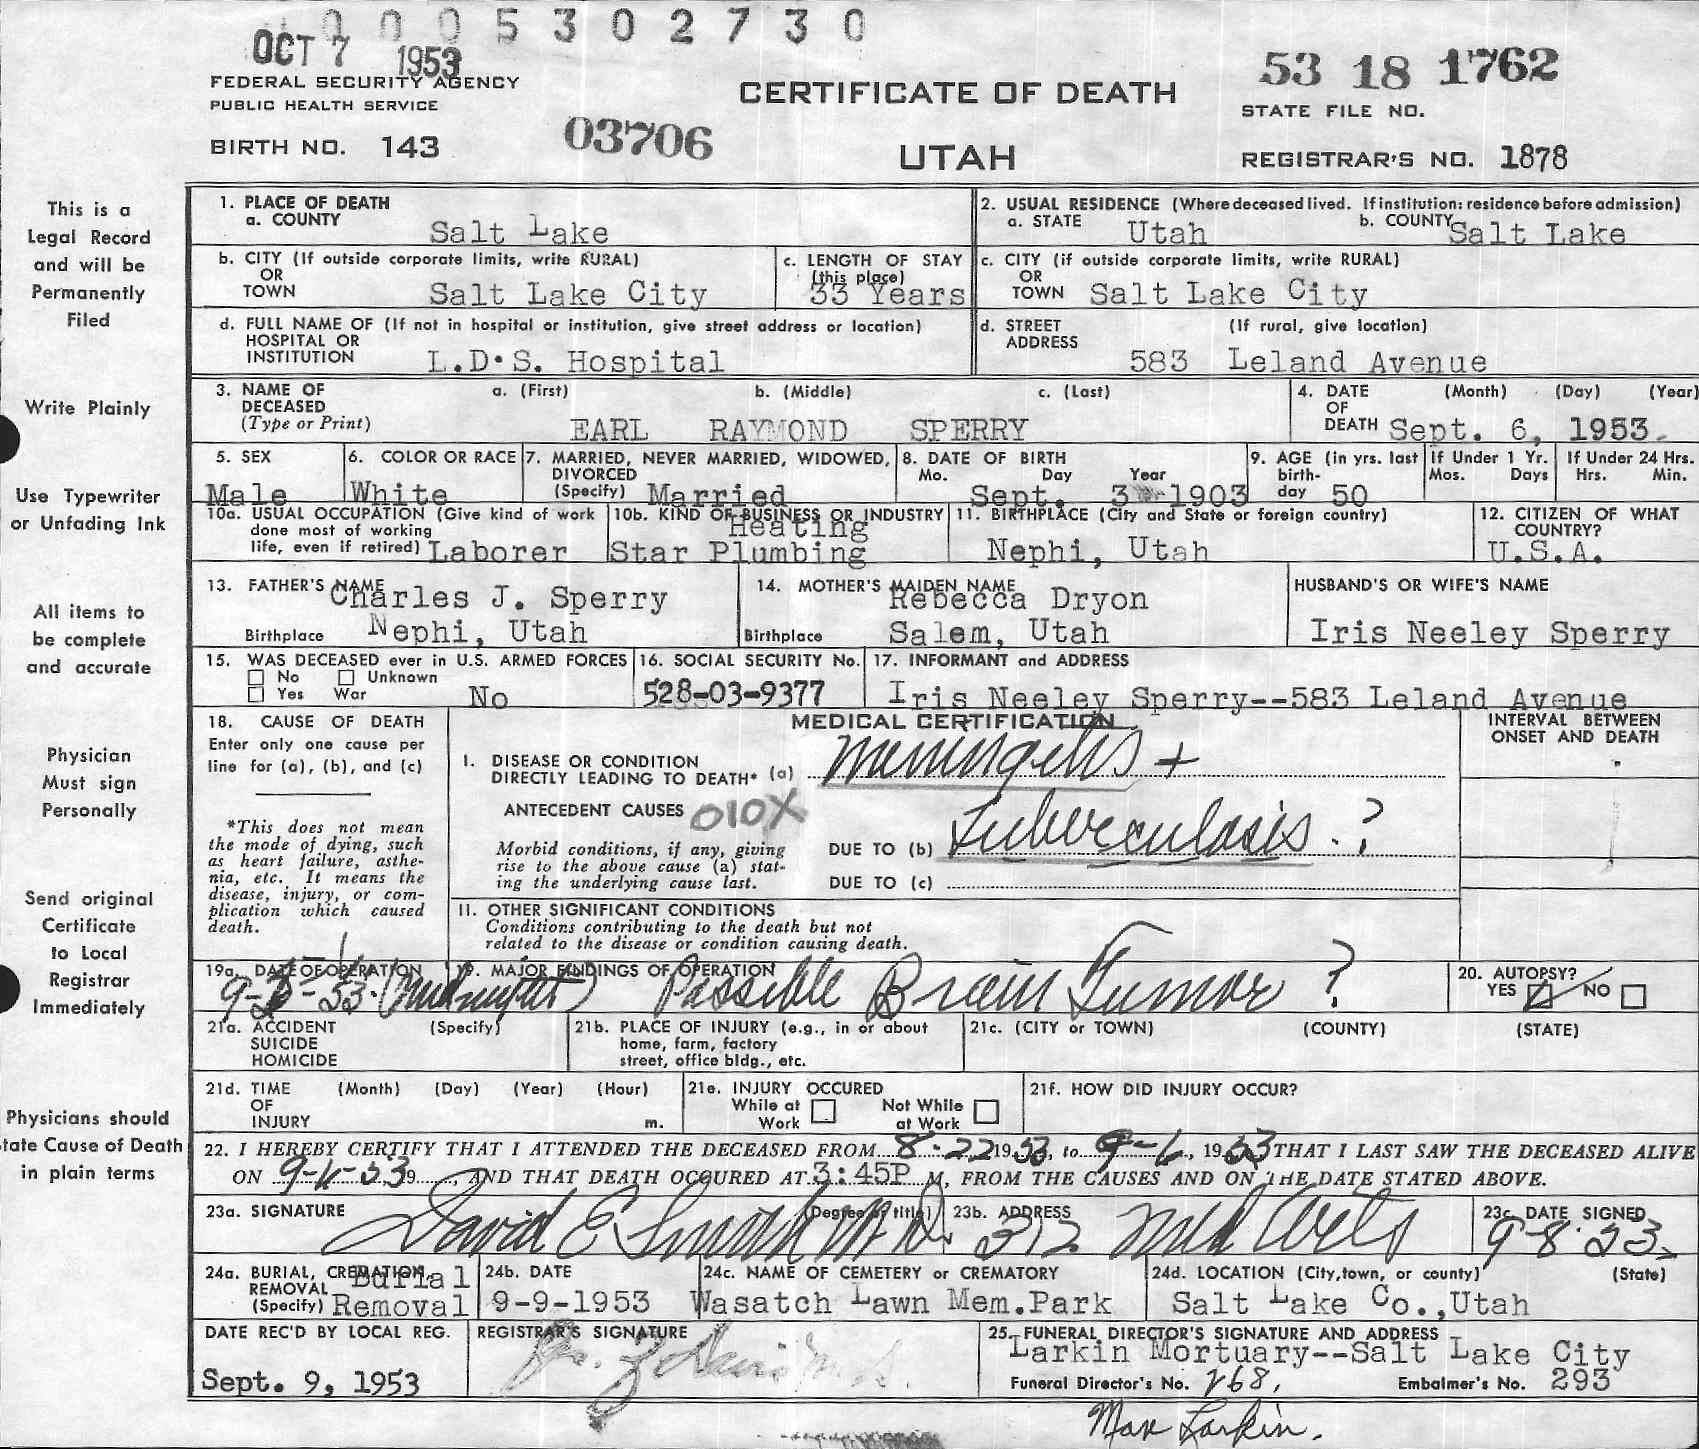 0 0 0 5 3 0 2 7 3 0
OCT 7 1953
FEDERAL SECURITY AGENCY
PUBLIC HEALTH SERVICE
BIRTH NO. 143
03706
CERTIFICATE OF DEATH
UTAH
53 18 1762
STATE FILE NO.
REGISTRAR'S NO. 1878
This is a
Legal Record
and will be
Permanently
Filed
Write Plainly
Use Typewriter
or Unfading Ink
All items to
be complete
and accurate
Physician
Must sign
Personally
Send original
Certificate
to Local
Registrar
Immediately
Physicians should
tate Cause of Death
in plain terms
1. PLACE OF DEATH
a. COUNTY Salt Lake
2. USUAL RESIDENCE (Where deceased lived. If institution: residence before admission)
a. STATE Utah b. COUNTY Salt Lake
b. CITY (If outside corporate limits, write RURAL)
OR
TOWN Salt Lake City
c. LENGTH OF STAY
(this place)
33 Years
c. CITY (if outside corporate limits, write RURAL)
OR
TOWN Salt Lake City
d. FULL NAME OF (If not in hospital or institution, give street address or location)
HOSPITAL OR
INSTITUTION L.D.S. Hospital
d. STREET (If rural, give location)
ADDRESS
583 Leland Avenue
3. NAME OF a. (First) b. (Middle) c. (Last)
DECEASED
(Type or Print) EARL RAYMOND SPERRY
4. DATE (Month) (Day) (Year)
OF
DEATH Sept. 6, 1953.
5. SEX
Male
6. COLOR OR RACE
White
7. MARRIED, NEVER MARRIED, WIDOWED,
DIVORCED
(Specify) Married
8. DATE OF BIRTH
Mo. Day Year
Sept. 3 1903
9. AGE (in yrs. last
birth-
day 50
If Under 1 Yr.
Mos. Days
If Under 24 Hrs.
Hrs. Min.
10a. USUAL OCCUPATION (Give kind of work
done most of working
life, even if retired) Laborer
10b. KIND OF BUSINESS OR INDUSTRY
Heating
Star Plumbing
11. BIRTHPLACE (City and State or foreign country)
Nephi, Utah
12. CITIZEN OF WHAT
COUNTRY?
U.S.A.
13. FATHER'S NAME
Charles J. Sperry
Birthplace Nephi, Utah
14. MOTHER'S MAIDEN NAME
Rebecca Dryon
Birthplace Salem, Utah
HUSBAND'S OR WIFE'S NAME
Iris Neeley Sperry
15. WAS DECEASED ever in U.S. ARMED FORCES
No Unknown
Yes War No
16. SOCIAL SECURITY No.
528-03-9377
17. INFORMANT and ADDRESS
Iris Neeley Sperry--583 Leland Avenue
18. CAUSE OF DEATH
Enter only one cause per
line for (a), (b), and (c)
*This does not mean
the mode of dying, such
as heart failure, asthe-
nia, etc. It means the
disease, injury, or com-
plication which caused
death.
MEDICAL CERTIFICATION
INTERVAL BETWEEN
ONSET AND DEATH
I. DISEASE OR CONDITION
DIRECTLY LEADING TO DEATH* (a) Meningitis +
ANTECEDENT CAUSES 010X
Morbid conditions, if any, giving
rise to the above cause (a) stat-
ing the underlying cause last.
DUE TO (b) Tuberculosis. ?
DUE TO (c)
II. OTHER SIGNIFICANT CONDITIONS
Conditions contributing to the death but not
related to the disease or condition causing death.
19a. DATE OF OPERATION
(Midnight)
19. MAJOR FINDINGS OF OPERATION
Possible Brain Tumor ?
20. AUTOPSY?
YES NO
21a. ACCIDENT (Specify)
SUICIDE
HOMICIDE
21b. PLACE OF INJURY (e.g., in or about
home, farm, factory
street, office bldg., etc.
21c. (CITY or TOWN) (COUNTY) (STATE)
21d. TIME (Month) (Day) (Year) (Hour)
OF
INJURY m.
21e. INJURY OCCURED
While at Work Not While at Work
21f. HOW DID INJURY OCCUR?
22. I HEREBY CERTIFY THAT I ATTENDED THE DECEASED FROM 8-22 1953, to 9-6, 1953 THAT I LAST SAW THE DECEASED ALIVE
ON 9-6-53 19, AND THAT DEATH OCCURED AT 3:45P M, FROM THE CAUSES AND ON THE DATE STATED ABOVE.
23a. SIGNATURE (Degree or title)
David E Smith M D.
23b. ADDRESS
312 Med Arts
23c. DATE SIGNED
9-8-53
24a. BURIAL, CREMATION,
REMOVAL
(Specify) Burial
Removal
24b. DATE
9-9-1953
24c. NAME OF CEMETERY or CREMATORY
Wasatch Lawn Mem.Park
24d. LOCATION (City, town, or county) (State)
Salt Lake Co.,Utah
DATE REC'D BY LOCAL REG.
Sept. 9, 1953
REGISTRAR'S SIGNATURE
25. FUNERAL DIRECTOR'S SIGNATURE AND ADDRESS
Larkin Mortuary--Salt Lake City
Funeral Director's No. 268, Embalmer's No. 293
Max Larkin.